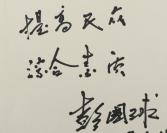 提高民众
综合素质
彭国球